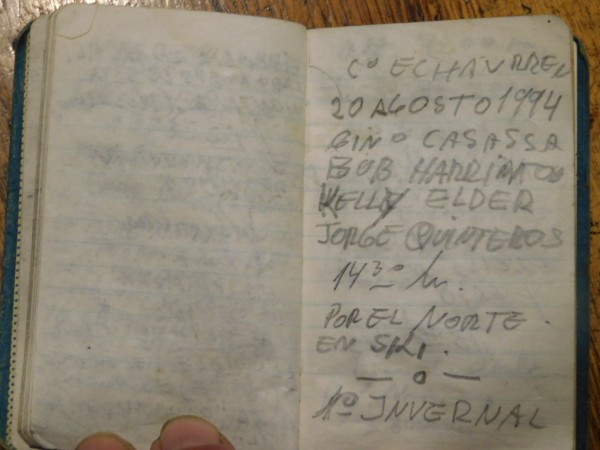 Cº ECHAURREN
20 AGOSTO 1994
GINO CASASSA
BOB HARRINTON
KELLY ELDER
JORGE QUINTEROS
14³⁰ h.
POR EL NORTE.
EN SKI.
— o —
1º INVERNAL